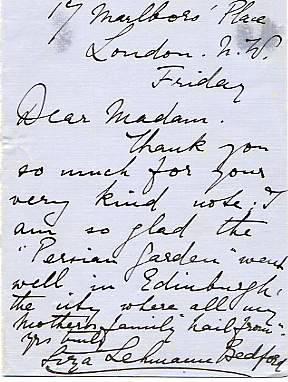 17 Marlboro' Place
London. N.W.
Friday
Dear Madam.
Thank you
so much for your
very kind note. I
am so glad the
"Persian Garden" went
well in Edinburgh,
the city where all my
mothers family "hail from"
yrs truly
Liza Lehmann Bedford